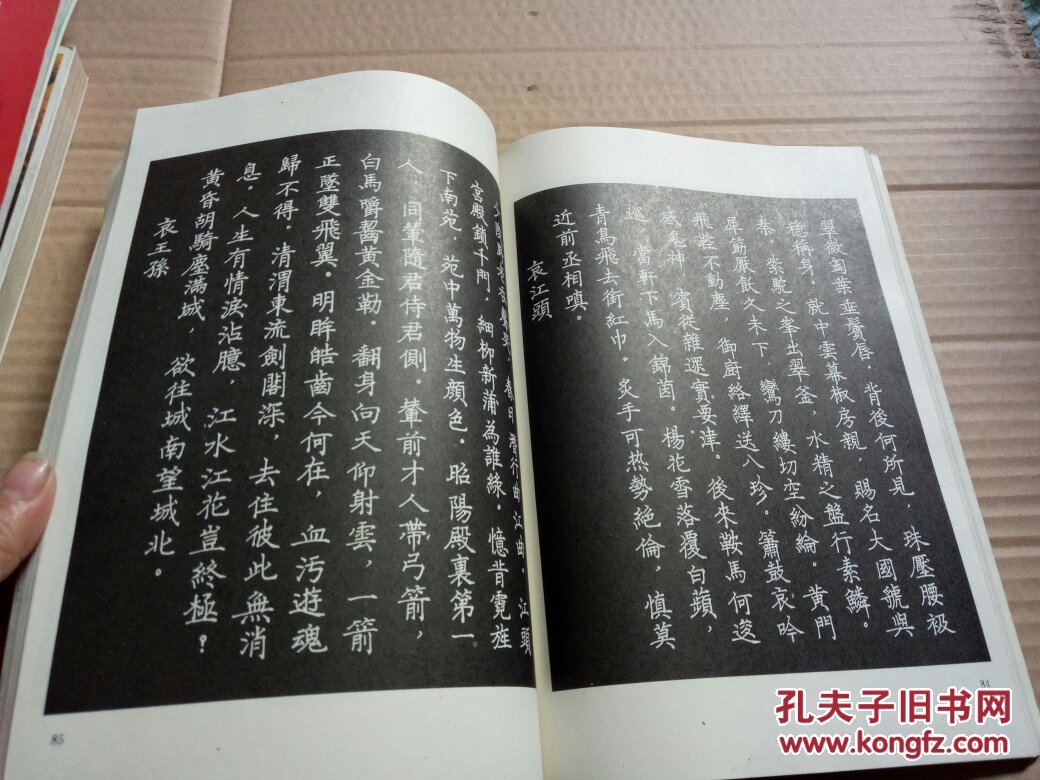 翠微匐葉垂鬢唇。背後何所見，珠壓腰衱
穩稱身。就中雲幕椒房親，賜名大國號與
秦。紫駝之峯出翠釜，水精之盤行素鱗。
犀筯厭飫久未下，鸞刀縷切空紛綸。黃門
飛鞚不動塵，御厨絡繹送八珍。簫鼓哀吟
感鬼神，賓從雜遝實要津。後來鞍馬何逡
巡，當軒下馬入錦茵。楊花雪落覆白蘋，
青鳥飛去銜紅巾。炙手可热勢絕倫，慎莫
近前丞相嗔。
哀江頭
84
少陵野老吞聲哭，春日潛行曲江曲。江頭
宮殿鎖千門，細柳新蒲為誰綠。憶昔霓旌
下南苑，苑中萬物生顏色。昭陽殿裏第一
人，同輦隨君侍君側。輦前才人帶弓箭，
白馬嚼齧黃金勒。翻身向天仰射雲，一箭
正墜雙飛翼。明眸皓齒今何在，血污遊魂
歸不得。清渭東流劍閣深，去住彼此無消
息。人生有情淚沾臆，江水江花豈終極？
黃昏胡騎塵滿城，欲往城南望城北。
哀王孫
85
孔夫子旧书网
www.kongfz.com